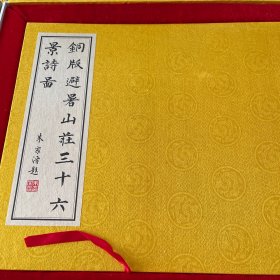 銅版避暑山莊三十六
景詩畫
朱家溍題